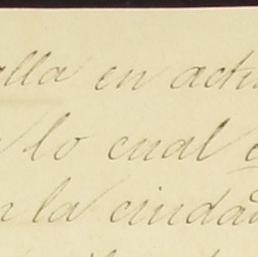 alla en actu
lo cual e
n la ciudad